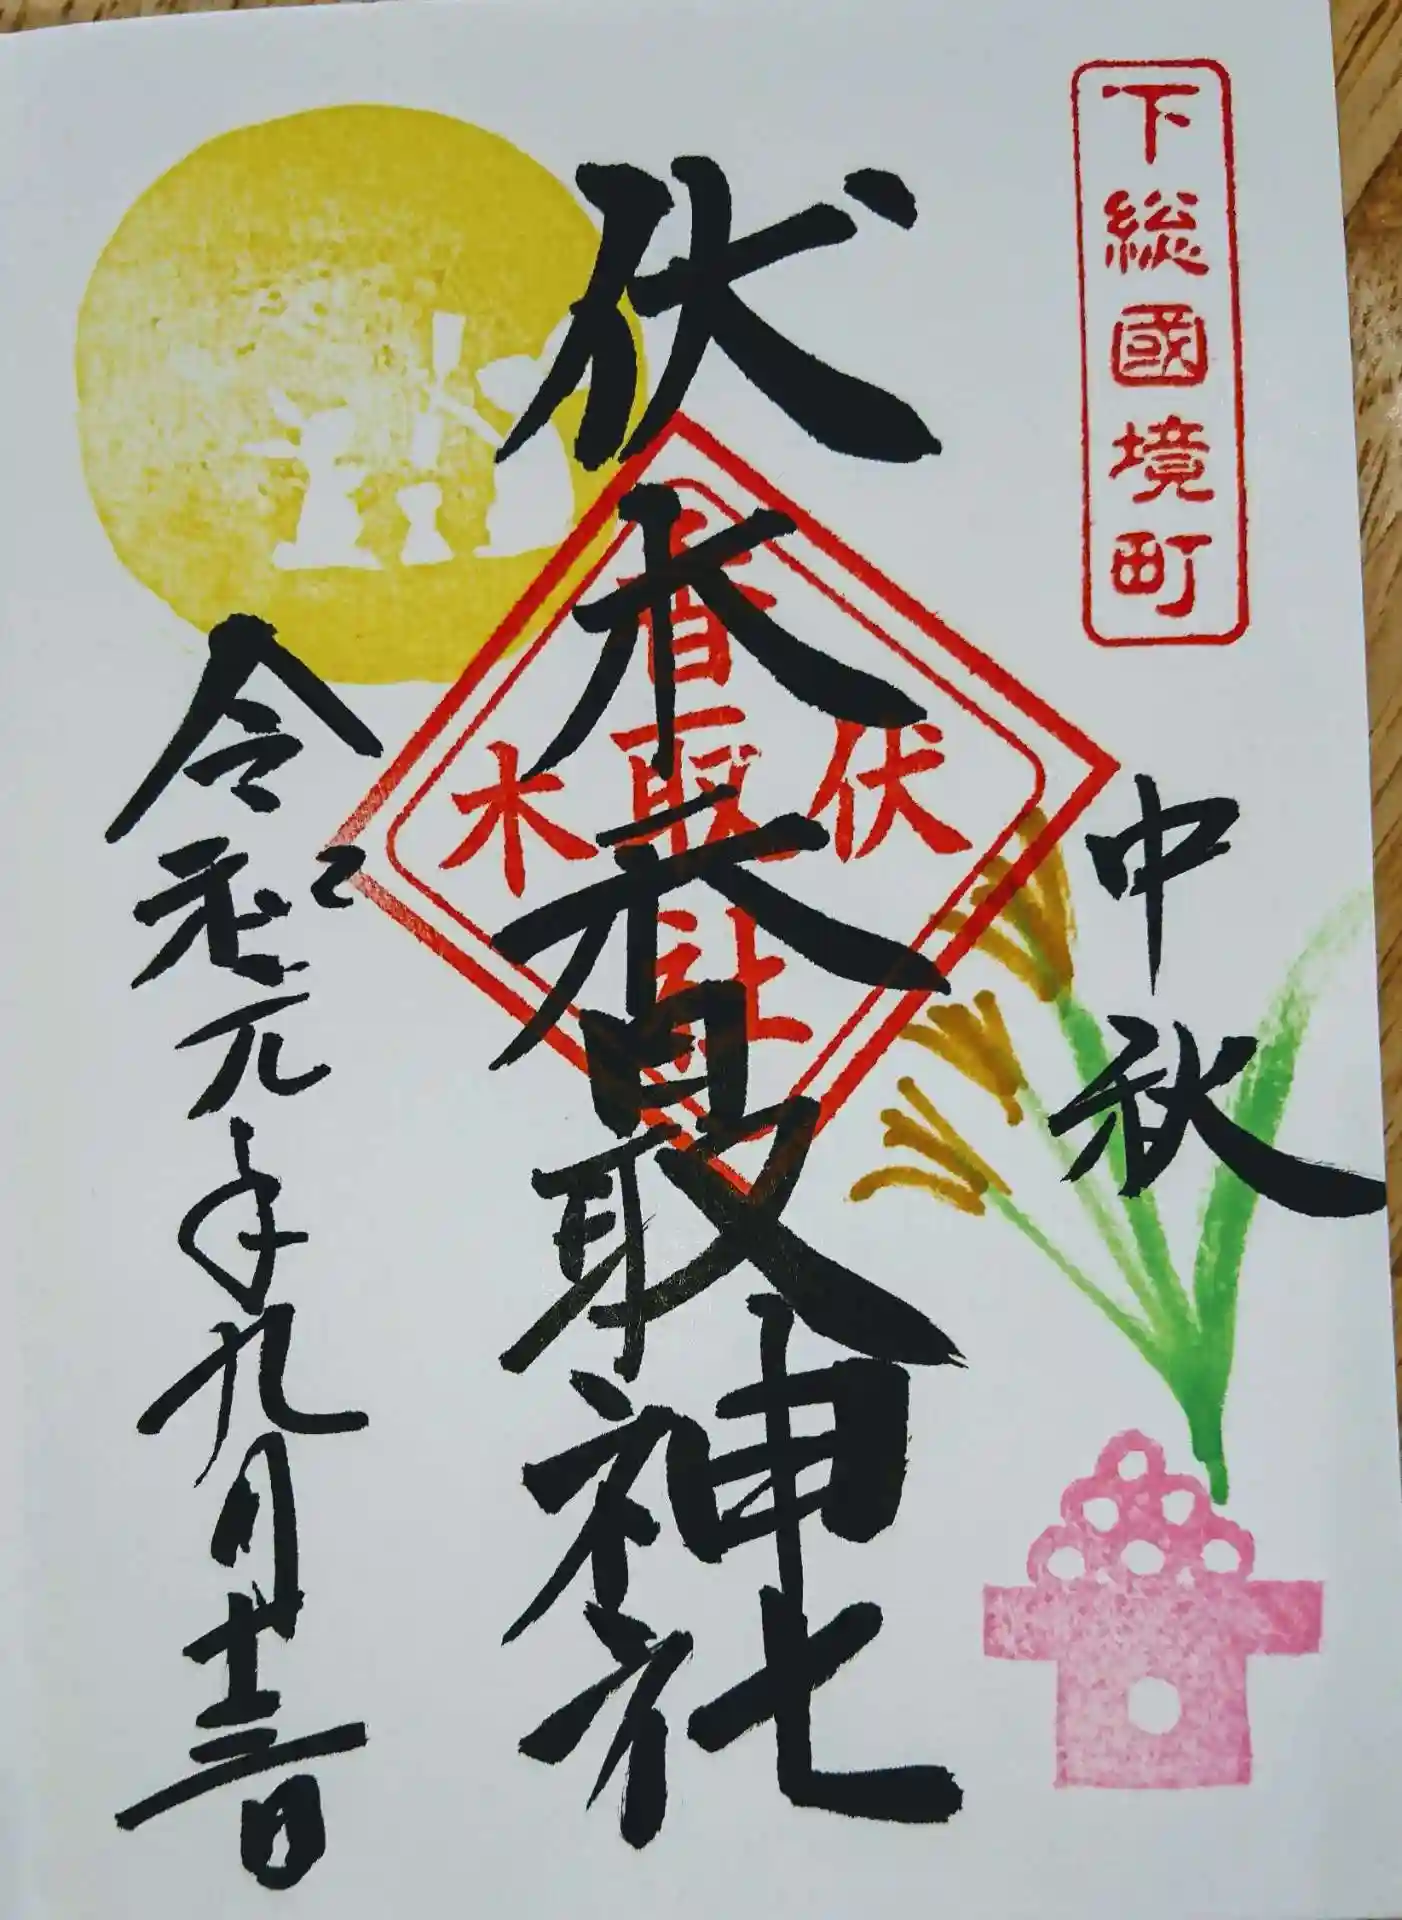 下総國境町
中秋
伏木香取神社
伏
香取社
木
令和元年九月十三日